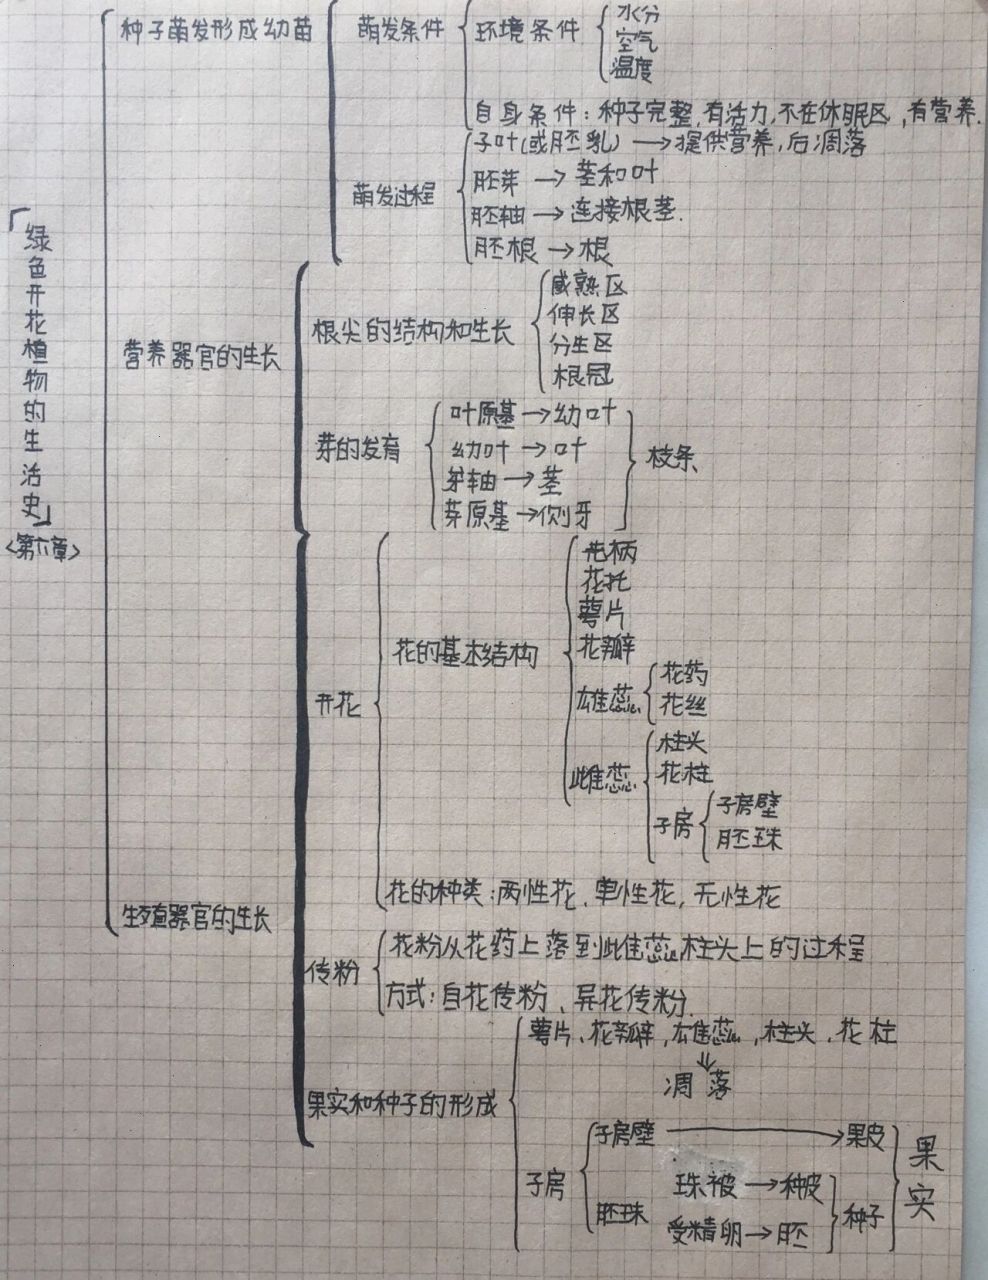 「绿色开花植物的生活史」
<第六章>
种子萌发形成幼苗
萌发条件
环境条件
水分
空气
温度
自身条件：种子完整,有活力,不在休眠区,有营养.
萌发过程
子叶(或胚乳)→提供营养,后凋落
胚芽→茎和叶
胚轴→连接根茎.
胚根→根
营养器官的生长
根尖的结构和生长
成熟区
伸长区
分生区
根冠
芽的发育
叶原基→幼叶
幼叶→叶
芽轴→茎
芽原基→侧牙
枝条
生殖器官的生长
开花
花的基本结构
花柄
花托
萼片
花瓣
雄蕊
花药
花丝
雌蕊
柱头
花柱
子房
子房壁
胚珠
花的种类：两性花、单性花,无性花
传粉
花粉从花药上落到雌蕊柱头上的过程
方式：自花传粉、异花传粉.
果实和种子的形成
萼片、花瓣,雄蕊,柱头、花柱
⇓
凋落
子房
子房壁→果皮
胚珠
珠被→种皮
受精卵→胚
种子
果实